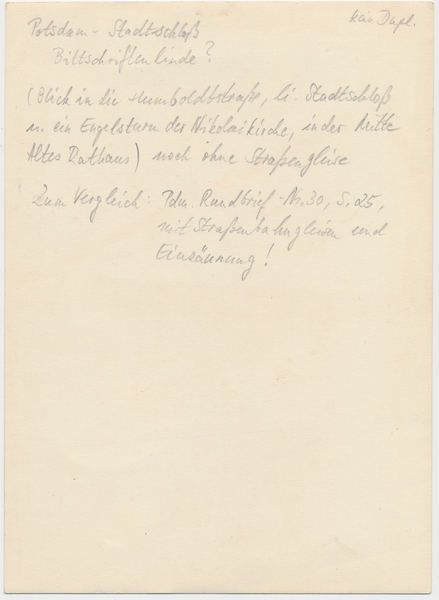 kein Dupl.
Potsdam - Stadtschloß
Bittschriftenlinde?
(Blick in die Humboldtstraße, li. Stadtschloß
u. ein Engelsturm der Nikolaikirche, in der Mitte
Altes Rathaus) noch ohne Straßengleise
Zum Vergleich: Pdm. Rundbrief Nr. 30, S. 25,
mit Straßenbahngleisen und
Einzäunung!